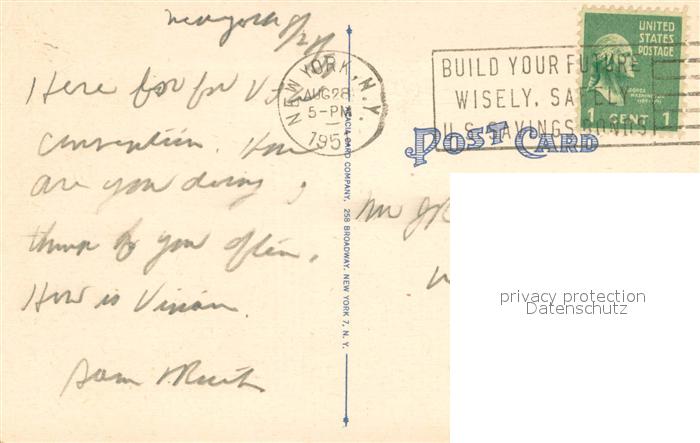 New York 8/28
Here for
convention. How
are you doing, I
think of you often.
How is Vivian.
Sam
NEW YORK, N.Y.
AUG 28
5-PM
195
BUILD YOUR FUTURE
WISELY, SAFELY
U.S. SAVINGS BONDS
UNITED
STATES
POSTAGE
GEORGE
WASHINGTON
CENT 1
POST CARD
ACACIA CARD COMPANY, 258 BROADWAY, NEW YORK 7, N. Y.
Mr
privacy protection
Datenschutz